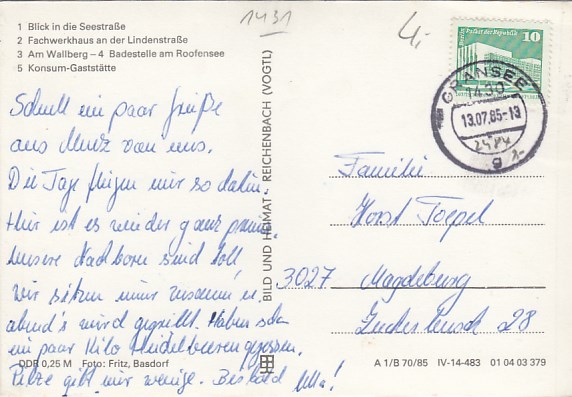 1 Blick in die Seestraße
2 Fachwerkhaus an der Lindenstraße
3 Am Wallberg – 4 Badestelle am Roofensee
5 Konsum-Gaststätte
1431
4,-
Berlin, Palast der Republik 10
GRANSEE 1
1430
13.07.85-13
g
Schnell ein paar Grüße
aus Menz von uns.
Die Tage fliegen nur so dahin.
Hier ist es wieder ganz prima.
Unsere Nachbarn sind toll,
wir sitzen immer zusammen u.
abend's wird gegrillt. Haben schon
ein paar Kilo Heidelbeeren gegessen.
Pilze gibt nur wenige. Bis bald Ulla!
BILD UND HEIMAT REICHENBACH (VOGTL)
Familie
Horst Toepel
3027 Magdeburg
28
DDR 0,25 M Foto: Fritz, Basdorf
A 1/B 70/85 IV-14-483 01 04 03 379